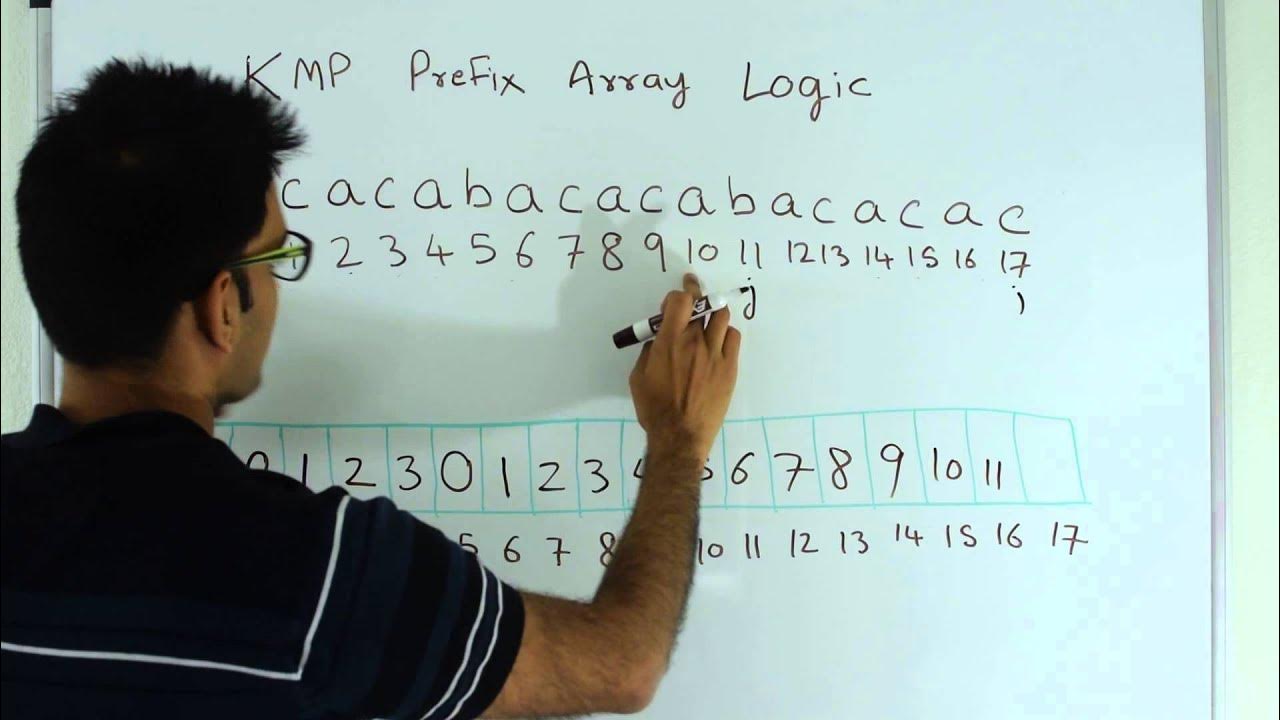 KMP Prefix Array Logic
c a c a b a c a c a b a c a c a c
1 2 3 4 5 6 7 8 9 10 11 12 13 14 15 16 17
j j
0 1 2 3 0 1 2 3 4 5 6 7 8 9 10 11
5 6 7 8 10 11 12 13 14 15 16 17